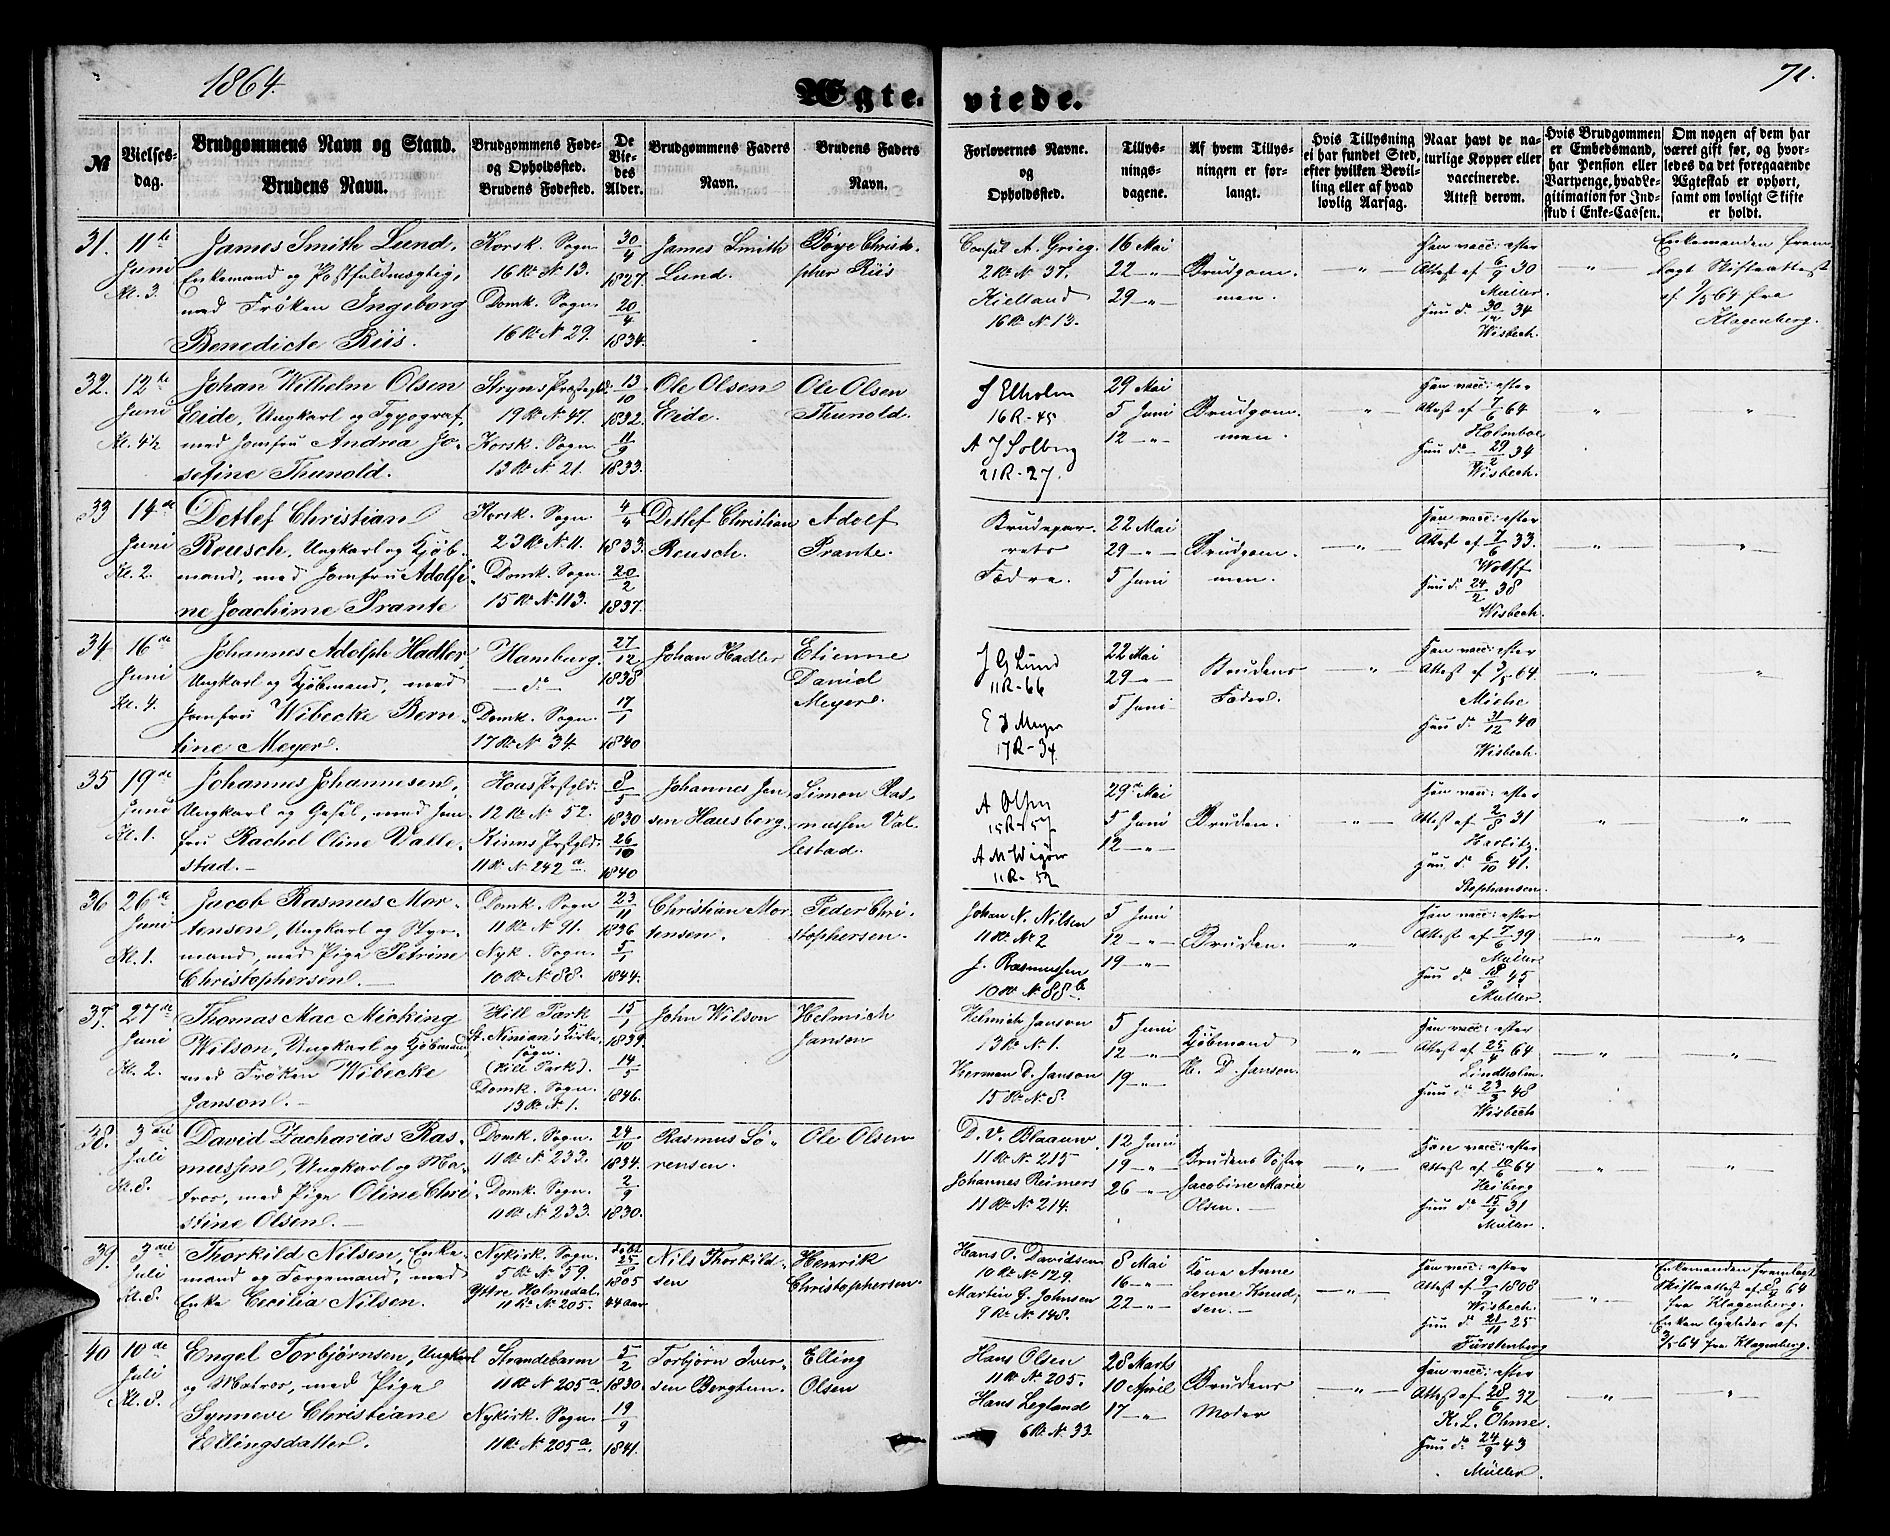 1864.
Ægte-
viede.
71.
№
Vielses-
dag.
Brudgommens Navn og Stand.
Brudens Navn.
Brudgommens Føde-
og Opholdssted.
Brudens Fødested.
De
Vie-
des
Alder.
Brudgommens Faders
Navn.
Brudens Faders
Navn.
Forlovernes Navne.
og
Opholdssted.
Tillys-
nings-
dagene.
Af hvem Tillys-
ningen er for-
langt.
Hvis Tillysning
ei har fundet Sted,
efter hvilken Bevil-
ling eller af hvad
lovlig Aarsag.
Naar havt de na-
turlige Kopper eller
vaccinerede.
Attest derom.
Hvis Brudgommen
er Embedsmand,
har Pension eller
Vartpenge, hvad Le-
gitimation for Ind-
skud i Enke-Cassen.
Om nogen af dem har
været gift før, og hvor-
ledes da det foregaaende
Ægteskab er ophørt,
samt om lovligt Skifte
er holdt.
31.
11te
Juni
Kl. 3.
James Smith Lund,
Enkemand og Postfuldmægtig,
med Frøken Ingeborg
Benedicte Riis.
Korsk. Sogn
16 R. N. 13.
Domk. Sogn.
16 R. N. 29.
30/4
1827.
20/4
1834.
James Smith
Lund.
Bøye Christo-
pher Riis
Consul A. Grieg.
2 R. N. 37.
Kielland
16 R. N. 13.
16 Mai
22 —„—
29 —„—
Brudgom-
men.
Han vacc: efter
Attest af 6/9 30
Müller.
Hun do 30/12 34
Wisbech.
Enkemanden frem-
lagt Skifteattest
af 9/5 64 fra
Klagenberg.
32.
12te
Juni
Kl. 4½
Johan Wilhelm Olsen
Eide, Ungkarl og Typograf,
med Jomfru Andrea Jo-
sefine Thunold.
Stryns Præstegld.
19 R. N. 47.
Korsk. Sogn.
13 R. N. 21.
13/10
1832.
11/9
1833.
Ole Olsen
Eide.
Ole Olsen
Thunold.
J Elholm
16 R - 45
A J Solberg
21 R - 27.
29 Mai
5 Juni
12 —„—
Brudgom-
men.
Han vacc: efter
Attest af 7/6 64
Holmboe
Hun do 29/2 34
Wisbech.
33
14de
Juni
Kl. 2.
Detlef Christian
Reusch, Ungkarl og Kjøb-
mand, med Jomfru Adolfi-
ne Joachime Prante
Korsk. Sogn
23 R. N. 11.
Domk. Sogn.
15 R. N. 113.
4/4
1833.
20/2
1837.
Detlef Christian
Reusch.
Adolf
Prante.
Brudepar-
rets
Fædre.
22 Mai
29 —„—
5 Juni
Brudgom-
men.
Han vacc: efter
Attest af 7/6 33.
Wolff
Hun do 24/2 38
Wisbech.
34
16de
Juni
Kl. 4.
Johannes Adolph Hadler,
Ungkarl og Kjøbmand, med
Jomfru Wibecke Bern-
tine Meyer.
Hamburg.
— do —
Domk. Sogn.
17 R. N 34
27/12
1838
17/1
1840
Johan Hadler
Etienne
Daniel
Meyer.
J G Lund
11R - 66
E D Meyer
17R - 34
22 Mai
29 —„—
5 Juni
Brudens
Fader.
Han vacc: efter
Attest af 3/5 64.
Hun do 31/12 40
Wisbech.
35
19de
Juni
Kl. 1.
Johannes Johannesen,
Ungkarl og Gesel, med Jom-
fru Rachel Oline Valle-
stad.—
Haus Prstgld.
12 R. N. 52.
Kinns Prstgld.
11 R. N. 242 a
8/5
1830
26/10
1840
Johannes Jen-
sen Hausberg.
Simon Ras-
mussen Val-
lestad.
A Olsen
15R - 57
A M Wigør
11R - 52
29de Mai
5 Juni
12 —„—
Bruden.
Han vacc: efter
Attest af 2/8 31
Harbitz.
Hun do 6/10 41.
Stephansen.
36
26de
Juni
Kl. 1.
Jacob Rasmus Mor-
tensen, Ungkarl og Styr-
mand, med Pige Petrine
Christophersen.—
Domk. Sogn
11 R. N. 91.
Nyk. Sogn.
10 R. N. 88.
23/11
1836
5/1
1844.
Christian Mor-
tensen.
Peder Chri-
stophersen.
Johan N. Nilsen
11 R. N. 2
J. Rasmussen
10 R. N. 88 b
5 Juni
12 —„—
19 —„—
Bruden.
Han vacc: efter
Attest af 7/6 39
Müller
Hun do 18/3 45
Müller.
37.
27de
Juni
Kl. 2.
Thomas Mac Micking
Wilson, Ungkarl og Kjøbmand
med Frøken Wibecke
Janson.—
Hill Park
St. Ninian's Kirke-
sogn.
(Hill Park).
Domk. Sogn.
13 R. N. 1.
15/1
1839.
14/5
1846.
John Wilson
Helmich
Janson
Helmich Janson
13 R. N. 1.
Herman D. Janson
15 R. N. 8.
5 Juni
12 —„—
19 —„—
Kjøbmand
H. D. Janson.
Han vacc: efter
Attest af 25/4 64
Lindholm.
Hun do 23/3 48
Wisbech
38.
3die
Juli
Kl. 8.
David Zacharias Ras-
mussen, Ungkarl og Ma-
tros, med Pige Oline Chri-
stine Olsen.—
Domk. Sogn.
11 R. N. 233.
Domk. Sogn.
11 R. N. 233.
24/10
1834.
2/9
1830.
Rasmus Sø-
rensen.
Ole Olsen
D. V. Blaauw.
11 R. N. 215
Johannes Reimers
11 R. N. 214.
12 Juni
19 —„—
26 —„—
Brudens Søster
Jacobine Marie
Olsen.—
Han vacc: efter
Attest af 10/6 64
Heiberg
Hun do 15/9 31
Müller.
39.
3die
Juli
Kl. 8.
Thorkild Nilsen, Enke-
mand og Færgemand, med
Enke Cecilia Nilsen.
Nykirk. Sogn.
5 R. N. 59.
Yttre Holmedal.
11 R. N. 205.
døbt
25/8
1805
44 Aar
Nils Thorkild-
sen
Henrik
Christophersen.
Hans O. Davidsen
10 R. N. 129.
Martin G. Johnsen
9 R. N. 148.
8 Mai
16 —„—
22 —„—
Kone Anne
Serene Knud-
sen.—
Han vacc: efter
Attest af 9/9 1808
Wisbech.
Hun do 21/11 25
Fürstenberg
Enkemanden fremlagt
Skifteattest af 8/4 64
fra Klagenberg.
Enken ligeledes af
3/5 64 fra Klagenberg.
40
10de
Juli
Kl. 8.
Engel Torbjørnsen, Ungkarl
og Matros, med Pige
Synneve Christiane
Ellingsdatter.
Strandebarm
11 R. N. 205 a.
Nykirk. Sogn.
11 R. N. 205 a.
5/2
1830.
19/9
1841.
Torbjørn Iver-
sen Bergtun.
Elling
Olsen
Hans Olsen
11 R. N. 205.
Hans Legland
6 R. N. 33
28 Marts
10 April
17 —„—
Brudens
Moder
Han vacc: efter
Attest af 28/6 32
K. L. Ohme.
Hun do 24/9 43
Müller.